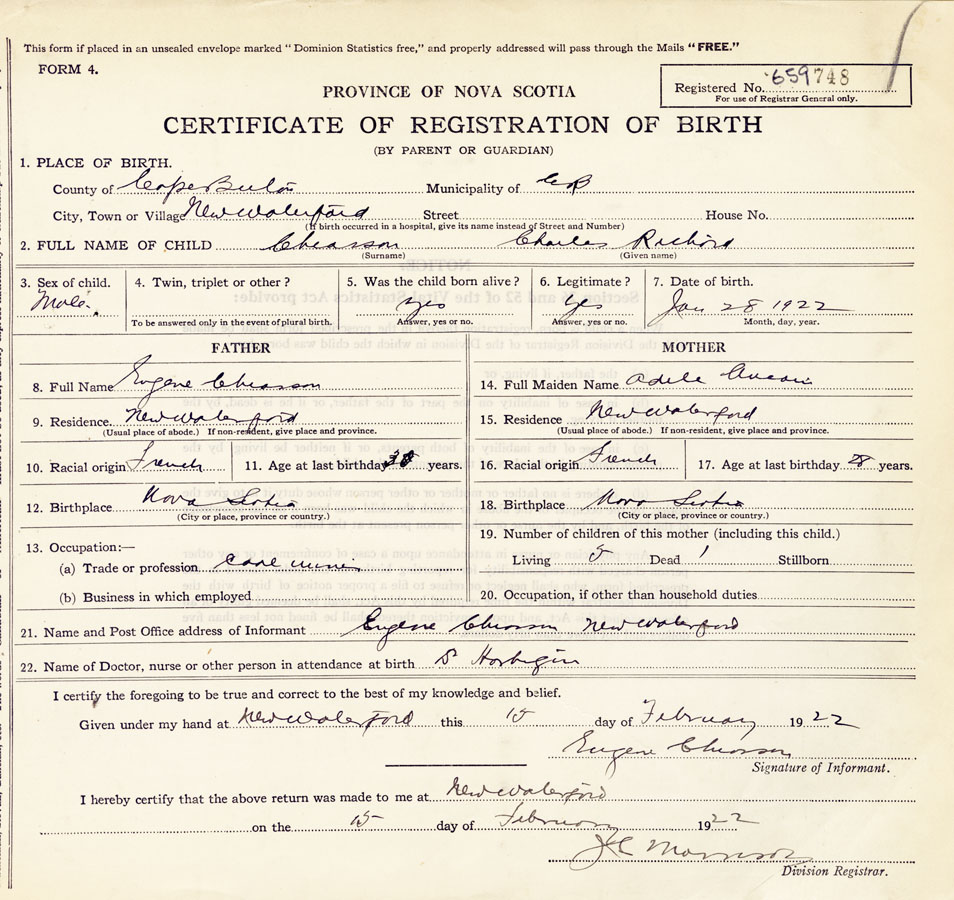 This form if placed in an unsealed envelope marked "Dominion Statistics free," and properly addressed will pass through the Mails "FREE."
FORM 4.
Registered No. 659748
For use of Registrar General only.
PROVINCE OF NOVA SCOTIA
CERTIFICATE OF REGISTRATION OF BIRTH
(BY PARENT OR GUARDIAN)
1. PLACE OF BIRTH.
County of Cape Breton Municipality of CB
City, Town or Village New Waterford Street House No.
(If birth occurred in a hospital, give its name instead of Street and Number)
2. FULL NAME OF CHILD Chiasson Charles Richard
(Surname) (Given name)
3. Sex of child. 4. Twin, triplet or other? 5. Was the child born alive? 6. Legitimate? 7. Date of birth.
Male. yes yes Jan 28 1922
To be answered only in the event of plural birth. Answer, yes or no. Answer, yes or no. Month, day, year.
FATHER MOTHER
8. Full Name Eugene Chiasson
9. Residence New Waterford
(Usual place of abode.) If non-resident, give place and province.
10. Racial origin French 11. Age at last birthday years.
12. Birthplace Nova Scotia
(City or place, province or country.)
13. Occupation:—
(a) Trade or profession Coal miner
(b) Business in which employed
14. Full Maiden Name Adele Aucoin
15. Residence New Waterford
(Usual place of abode.) If non-resident, give place and province.
16. Racial origin French 17. Age at last birthday years.
18. Birthplace Nova Scotia
(City or place, province or country.)
19. Number of children of this mother (including this child.)
Living 5 Dead 1 Stillborn
20. Occupation, if other than household duties
21. Name and Post Office address of Informant Eugene Chiasson New Waterford
22. Name of Doctor, nurse or other person in attendance at birth
I certify the foregoing to be true and correct to the best of my knowledge and belief.
Given under my hand at New Waterford this 15 day of February 1922
Eugene Chiasson
Signature of Informant.
I hereby certify that the above return was made to me at New Waterford
on the 15 day of February 1922
J C Morrison
Division Registrar.